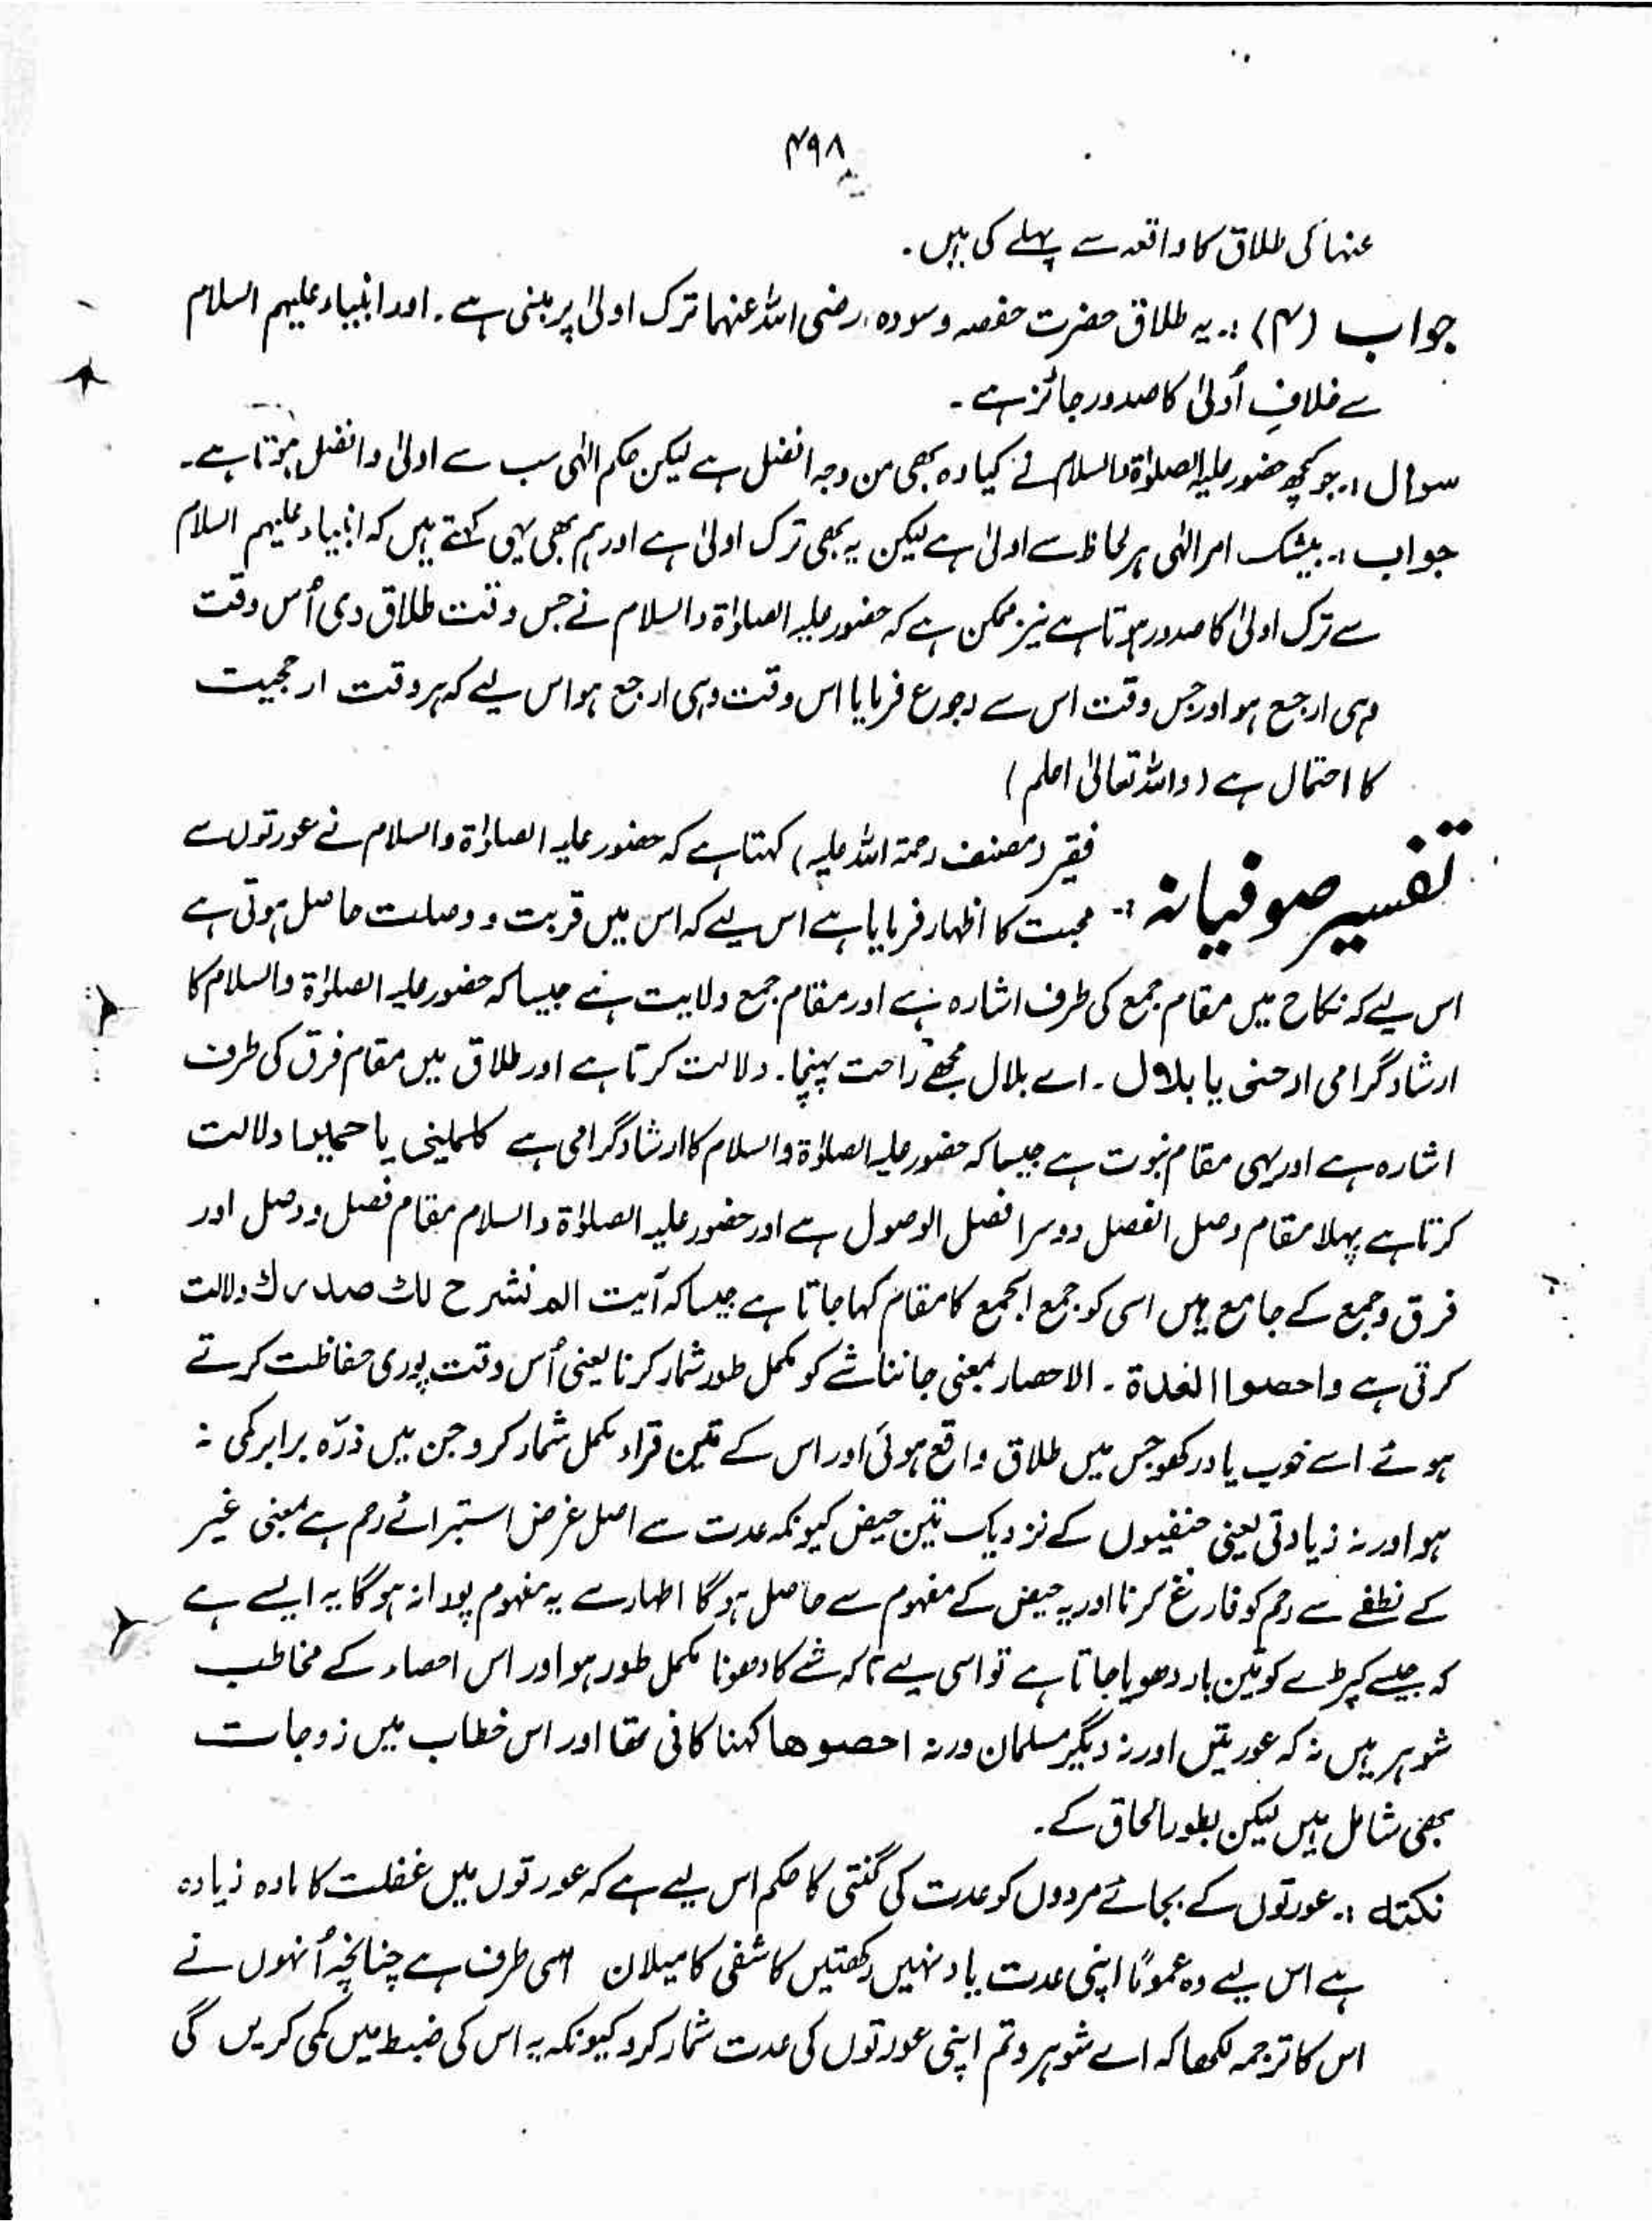 ۴۹۸
عنہا کی طلاق کا واقعہ سے پہلے کی ہیں۔
جواب (۴) :۔ یہ طلاق حضرت حفصہ و سودہ رضی اللہ عنہما ترک اولیٰ پر مبنی ہے۔ اور انبیاء علیہم السلام
سے خلافِ اَولیٰ کا صدور جائز ہے۔
سوال :۔ جو کچھ حضور علیہ الصلوٰۃ والسلام نے کیا وہ بھی من وجہ افضل ہے لیکن حکم الٰہی سب سے اولیٰ و افضل ہوتا ہے۔
جواب :۔ بیشک امر الٰہی ہر لحاظ سے اولیٰ ہے لیکن یہ بھی ترک اولیٰ ہے اور ہم بھی یہی کہتے ہیں کہ انبیاء علیہم السلام
سے ترک اولیٰ کا صدور ہوتا ہے نیز ممکن ہے کہ حضور علیہ الصلوٰۃ والسلام نے جس وقت طلاق دی اُس وقت
وہی ارجع ہو اور جس وقت اس سے رجوع فرمایا اس وقت وہی ارجع ہو اس لیے کہ ہر وقت ارجحیت
کا احتمال ہے (واللہ تعالیٰ اعلم)
تفسیر صوفیانہ :۔ فقیر (مصنف رحمۃ اللہ علیہ) کہتا ہے کہ حضور علیہ الصلوٰۃ والسلام نے عورتوں سے
محبت کا اظہار فرمایا ہے اس لیے کہ اس میں قربت و وصلت حاصل ہوتی ہے
اس لیے کہ نکاح میں مقام جمع کی طرف اشارہ ہے اور مقام جمع ولایت ہے جیسا کہ حضور علیہ الصلوٰۃ والسلام کا
ارشاد گرامی ارحنی یا بلال ۔ اے بلال مجھے راحت پہنچا۔ دلالت کرتا ہے اور طلاق میں مقام فرق کی طرف
اشارہ ہے اور یہی مقام نبوت ہے جیسا کہ حضور علیہ الصلوٰۃ والسلام کا ارشاد گرامی ہے کلمینی یا حمیرا دلالت
کرتا ہے پہلا مقام وصل الفصل دوسرا فصل الوصول ہے اور حضور علیہ الصلوٰۃ والسلام مقام فصل و وصل اور
فرق و جمع کے جامع ہیں اسی کو جمع الجمع کا مقام کہا جاتا ہے جیسا کہ آیت الم نشرح لک صدرک دلالت
کرتی ہے واحصوا العدۃ ۔ الاحصار بمعنی جاننا شے کو مکمل طور شمار کرنا یعنی اُس وقت پوری حفاظت کرتے
ہوئے اسے خوب یاد رکھو جس میں طلاق واقع ہوئی اور اس کے تین قراء مکمل شمار کرو جن میں ذرّہ برابر کمی نہ
ہو اور نہ زیادتی یعنی حنفیوں کے نزدیک تین حیض کیونکہ عدت سے اصل غرض استبرائے رحم ہے بمعنی غیر
کے نطفے سے رحم کو فارغ کرنا اور یہ حیض کے مفہوم سے حاصل ہو گا اطہار سے یہ مفہوم پورا نہ ہو گا یہ ایسے ہے
کہ جیسے کپڑے کو تین بار دھویا جاتا ہے تو اسی لیے تاکہ شے کا دھونا مکمل طور ہو اور اس احصاء کے مخاطب
شوہر ہیں نہ کہ عورتیں اور نہ دیگر مسلمان ورنہ احصوھا کہنا کافی تھا اور اس خطاب میں زوجات
بھی شامل ہیں لیکن بطور الحاق کے۔
نکتہ :۔ عورتوں کے بجائے مردوں کو عدت کی گنتی کا حکم اس لیے ہے کہ عورتوں میں غفلت کا مادہ زیادہ
ہے اس لیے وہ عموماً اپنی عدت یاد نہیں رکھتیں کاشفی کا میلان اسی طرف ہے چنانچہ اُنہوں نے
اس کا ترجمہ لکھا کہ اے شوہرو تم اپنی عورتوں کی عدت شمار کرو کیونکہ یہ اس کی ضبط میں کمی کریں گی